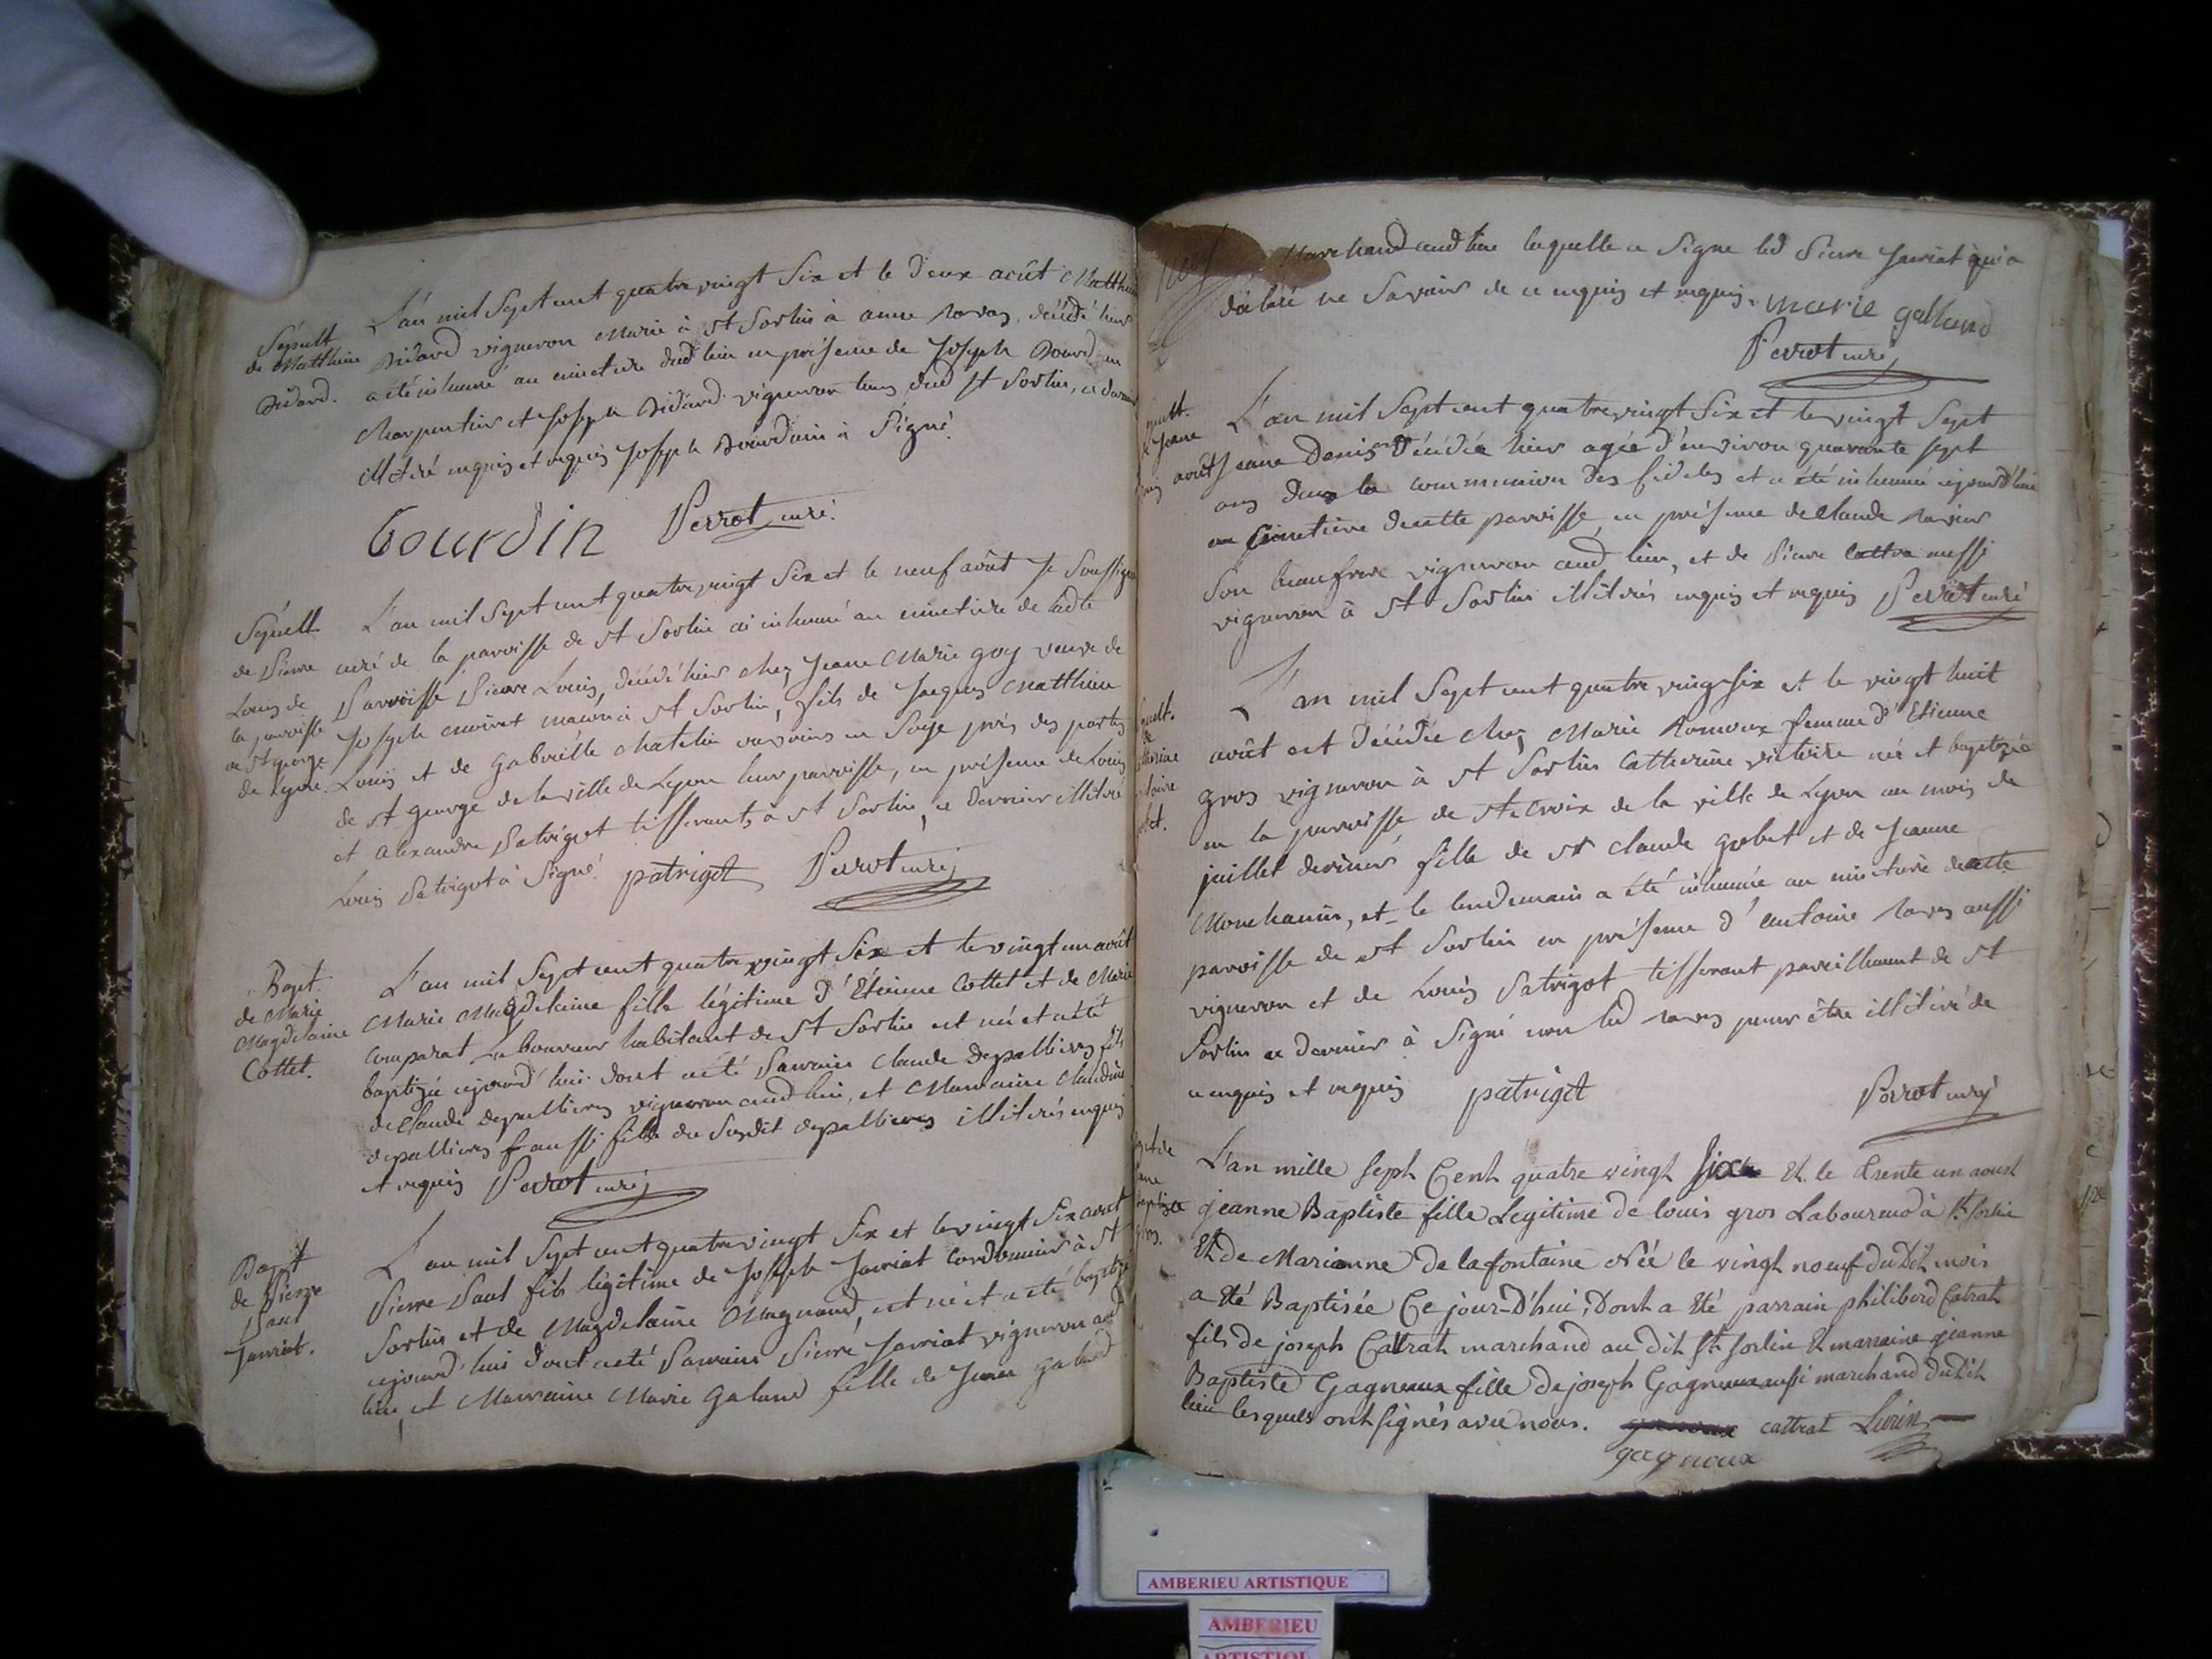 Sépult
de Matthieu
Didard.
L'an mil Sept cent quatre vingt Six et le deux août Matthieu
Didard vigneron Marié à St Sorlin à anne ravas, décédé hier
a été inhumé au cimetiere dud lieu en présence de Joseph Bourdin
charpentier et Joseph Didard vigneron tous dud St Sorlin, ce dernier
illitéré enquis et requis Joseph Bourdain à Signé.
Bourdin Perrot curé.
Sépult
de Pierre
Louis de
la paroisse
de St george
de Lyon.
L'an mil Sept cent quatre vingt Six et le neuf août Je Soussigné
curé de la paroisse de St Sorlin ai inhumé au cimetiere de ladte
Parroisse Pierre Louis, décédé hier chez Jeane Marie goy veuve de
Joseph maçon à St Sorlin, fils de Jacques Matthieu
Louis et de Gabrielle Chatelin ouvriers en Soye près des portes
de St george de la ville de Lyon leur paroisse, en présence de Louis
et alexandre Patrigot tisserants à St Sorlin, ce dernier illitéré
Louis Patrigot à Signé. patrigot Perrot curé
Bapt.
de Marie
Magdelaine
Cottet.
L'an mil Sept cent quatre vingt Six et le vingt un août
Marie Magdelaine fille légitime d'Étienne Cottet et de Marie
Comparat Laboureur habitant de St Sorlin est née et a été
baptizée ajourd'hui dont a été Parrain Claude depallieres fils
de Claude depallieres vigneron aud lieu, et Marraine Claudine
depallieres aussi fille du Susdit depallieres illitérés enquis
et requis Perrot curé
Bapt
de Pierre
Paul
Jauriat.
L'an mil Sept cent quatre vingt Six et le vingt Six août
Pierre Paul fils légitime de Joseph Jauriat Cordonnier à St
Sorlin et de Magdelaine Magnand, est né et a été baptizé
ajourd'hui dont a été Parrain Pierre Jauriat vigneron aud
lieu, et Marraine Marie Galand fille de Galand
Marchand aud lieu laquelle a Signé led Pierre Jauriat qui a
déclaré ne Savoir de ce enquis et requis. marie galland
Perrot curé
L'an mil Sept cent quatre vingt Six et le vingt Sept
août Jeane Denis Décédée hier agée d'environ quarante sept
ans dans la communion des fideles et a été inhumée ajourd'hui
au Cimetiere de cette paroisse, en présence de Claude
Son beaufrere vigneron aud lieu, et de Pierre Cattra aussi
vigneron à St Sorlin illitérés enquis et requis Perrot curé
L'an mil Sept cent quatre vingt six et le vingt huit
août est décédée chez Marie femme d'Etienne
gros vigneron à St Sorlin Catherine victoire née et baptizée
en la paroisse de Ste Croix de la ville de Lyon au mois de
juillet dernier fille de Sr Claude gobet et de Jeanne
Monchanin, et le lendemain a été inhumée au cimetiere de cette
paroisse de St Sorlin en présence d'antoine ravas aussi
vigneron et de Louis Patrigot tisserant pareillement de St
Sorlin ce dernier à Signé non led ravas pour être illitéré de
ce enquis et requis patrigot Perrot curé
L'an mille Sept Cent quatre vingt Six Et le trente un aoust
jeanne Baptiste fille Legitime de louis gros Laboureur à St Sorlin
Et de Marianne De lafontaine Née le vingt neuf du Dit mois
a Eté Baptisée Ce jour-D'hui; Dont a Eté parrain philiberd Catrat
fils de joseph Cattrat marchand au dit St sorlin & marraine jeanne
Baptiste Gagneux fille De joseph Gagneux aussi marchand Du Dit
lieu lesquels ont signés avec nous. cattrat Livin
gagneux
AMBERIEU ARTISTIQUE
AMBERIEU
ARTISTIQUE